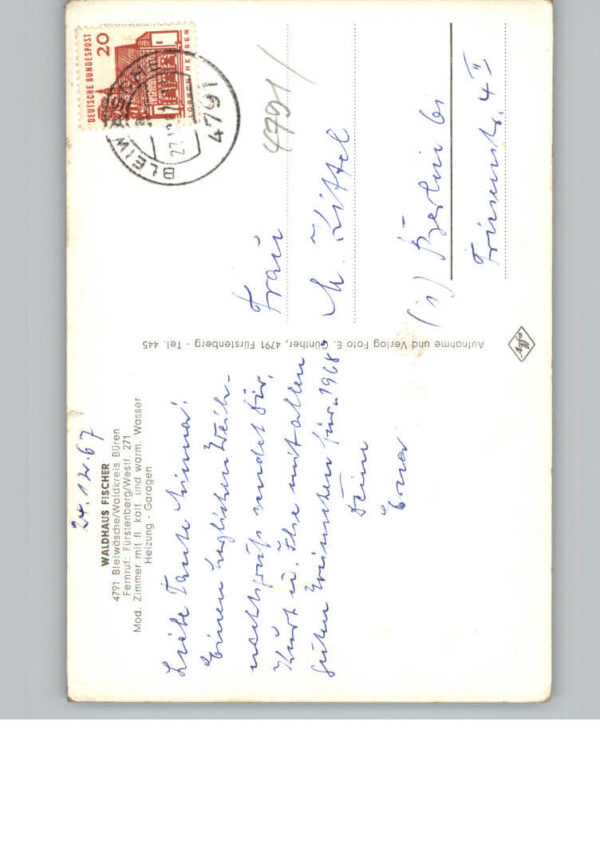 24.12.67
WALDHAUS FISCHER
4791 Bleiwäsche/Waldkreis Büren
Fernruf: Fürstenberg/Westf. 271
Mod. Zimmer mit fl. kalt. und warm. Wasser
Heizung - Garagen
Liebe Tante Minna!
Einen herzlichen Weih-
nachtsgruß sendet Dir,
Kurt u. Ilse mit allen
guten Wünschen für 1968.
Deine
Erna
Aufnahme und Verlag Foto E. Günther, 4791 Fürstenberg - Tel. 445
Agfa
DEUTSCHE BUNDESPOST
20
LORSCH/HESSEN
4791
4791/
Frau
M. Zittel
(1) Berlin 61
4 II